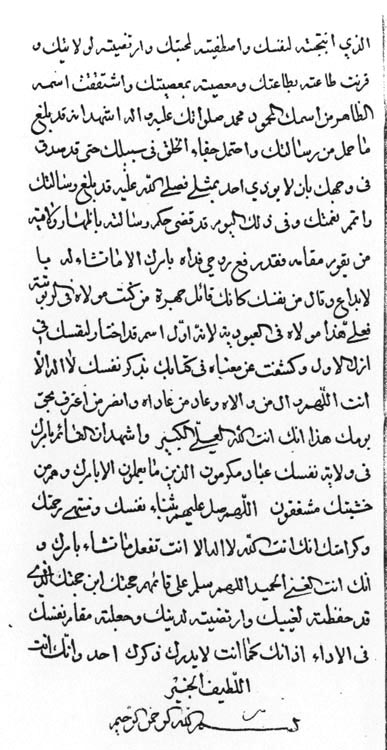 الذي انتجبته لنفسك واصطفيته لمحبتك وارتضيته لولايتك و
قرنت طاعته بطاعتك ومعصيته بمعصيتك واشتققت اسمه
الظاهر من اسمك المحمود محمد صلواتك عليه واله اشهد انه قد بلغ
ما حمل من رسالتك واحتمل جفاء الخلق في سبيلك حتى قد صدق
في وجهك بان لا يوذي احد بمثلي فصلي الله عليه قد بلغ رسالتك
واتم نعمتك وفي ذلك اليوم قد قضى حكم رسالته باظهار ولاية
من يقوم مقامه فقد رفع روحي فداه بامرك الا ما تشاء له يا
لابداع وقال من نفسك كانك قائل جهرة من كنت مولاه في الربوبية
فعلي هذا مولاه في العبودية لانه اول اسم قد اختار لنفسك في
ازل الاول وكشفت عن معناه في كتابك بذكر نفسك لا اله الا
انت اللهم وال من والاه وعاد من عاداه وانصر من اعترف بحق
يومك هذا انك انت الله العلي الكبير واشهد ان القائم بامرك
في ولاية نفسك عباد مكرمون الذين ما يعملون الا بامرك وهم من
خشيتك مشفقون اللهم صل عليهم بثناء نفسك ومنتهى رحمتك
وكرامتك انك انت الله لا اله الا انت تفعل ما تشاء بامرك و
انك انت الغني الحميد اللهم سلم على قائمهم حجتك ابن حجتك الذي
قد حفظته لغيبك وارتضيته لدينك وجعلته مقام نفسك
في الاداء اذ انك كما انت لا يدرك ذكرك احد وانك انت
اللطيف الخبير
بسم الله الرحمن الرحيم